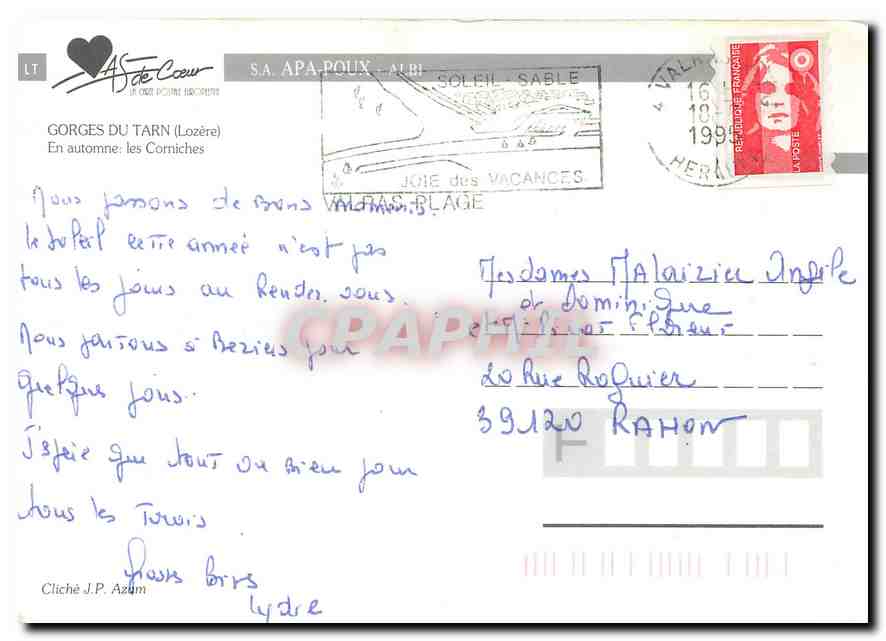 LT
AS de Cœur
LA CARTE POSTALE EUROPEENNE
S.A. APA-POUX - ALBI
GORGES DU TARN (Lozère)
En automne: les Corniches
SOLEIL - SABLE
JOIE des VACANCES
VALRAS-PLAGE
16
18
1995
HERAULT
RÉPUBLIQUE FRANÇAISE
LA POSTE
Nous passons de Bons moments.
le soleil cette année n'est pas
tous les jours au Rendez-vous.
Nous partons à Beziers pour
quelques jours.
J'espère que tout va Bien pour
tous les Trois
Gross Bises
Lydie
Mesdames Malaizier Angèle
et Dominique
et Florent
20 Rue Roguier
39120 RAHON
CPAPHIL
Cliché J.P. Azam